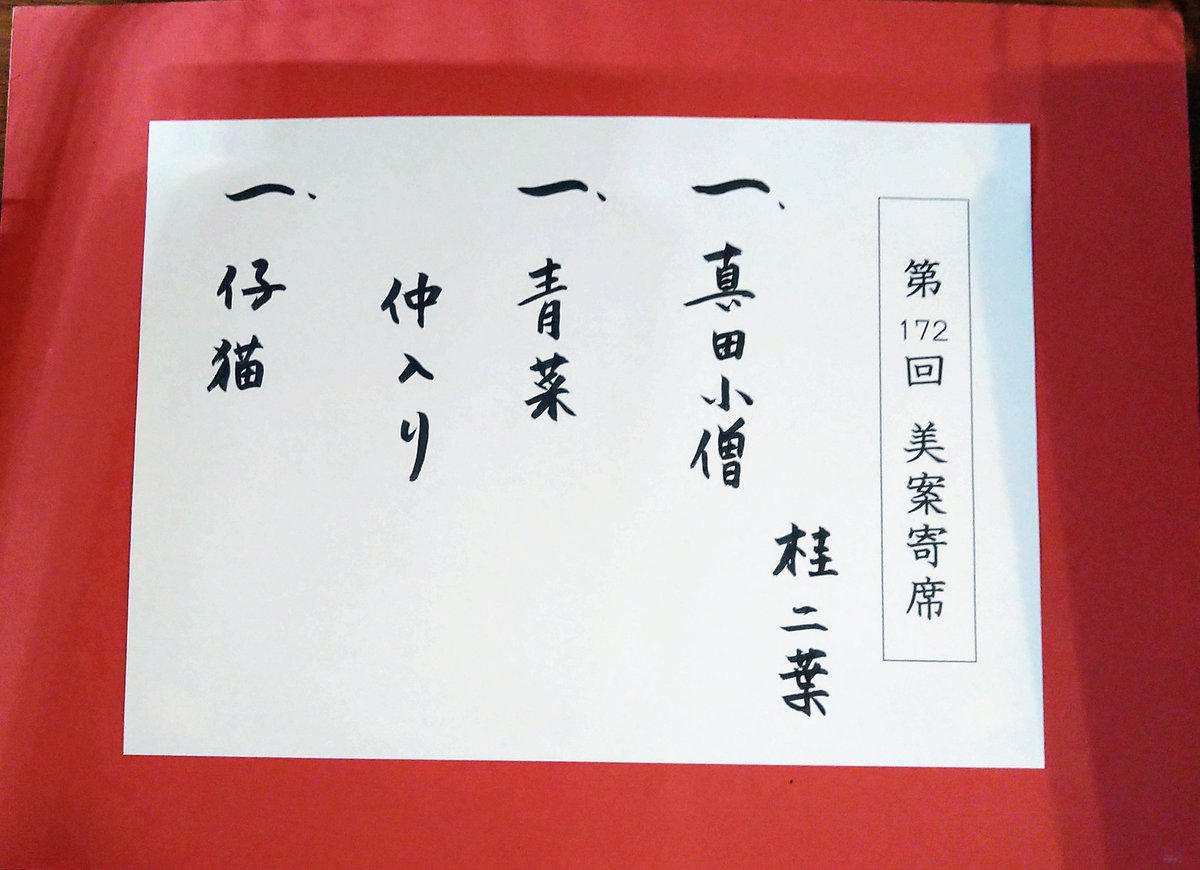 第172回 美案寄席
桂二葉
一、真田小僧
一、青菜
仲入り
一、仔猫